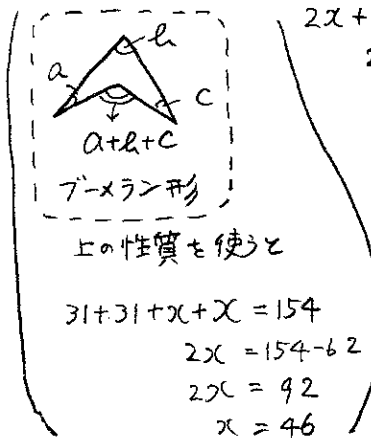 2x+
2
a
b
c
a+b+c
ブーメラン形
上の性質を使うと
31+31+x+x=154
2x=154-62
2x=92
x=46